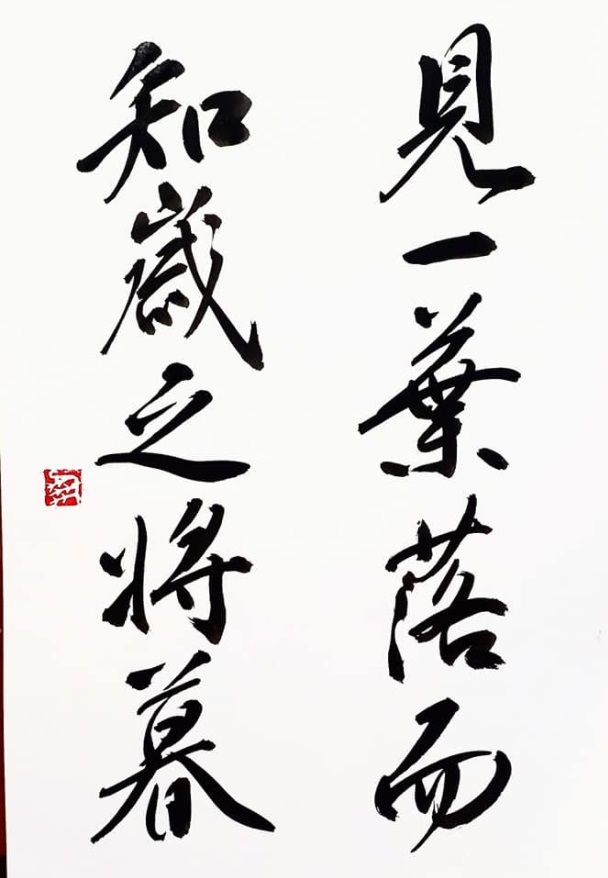 見一葉落而
知歳之将暮